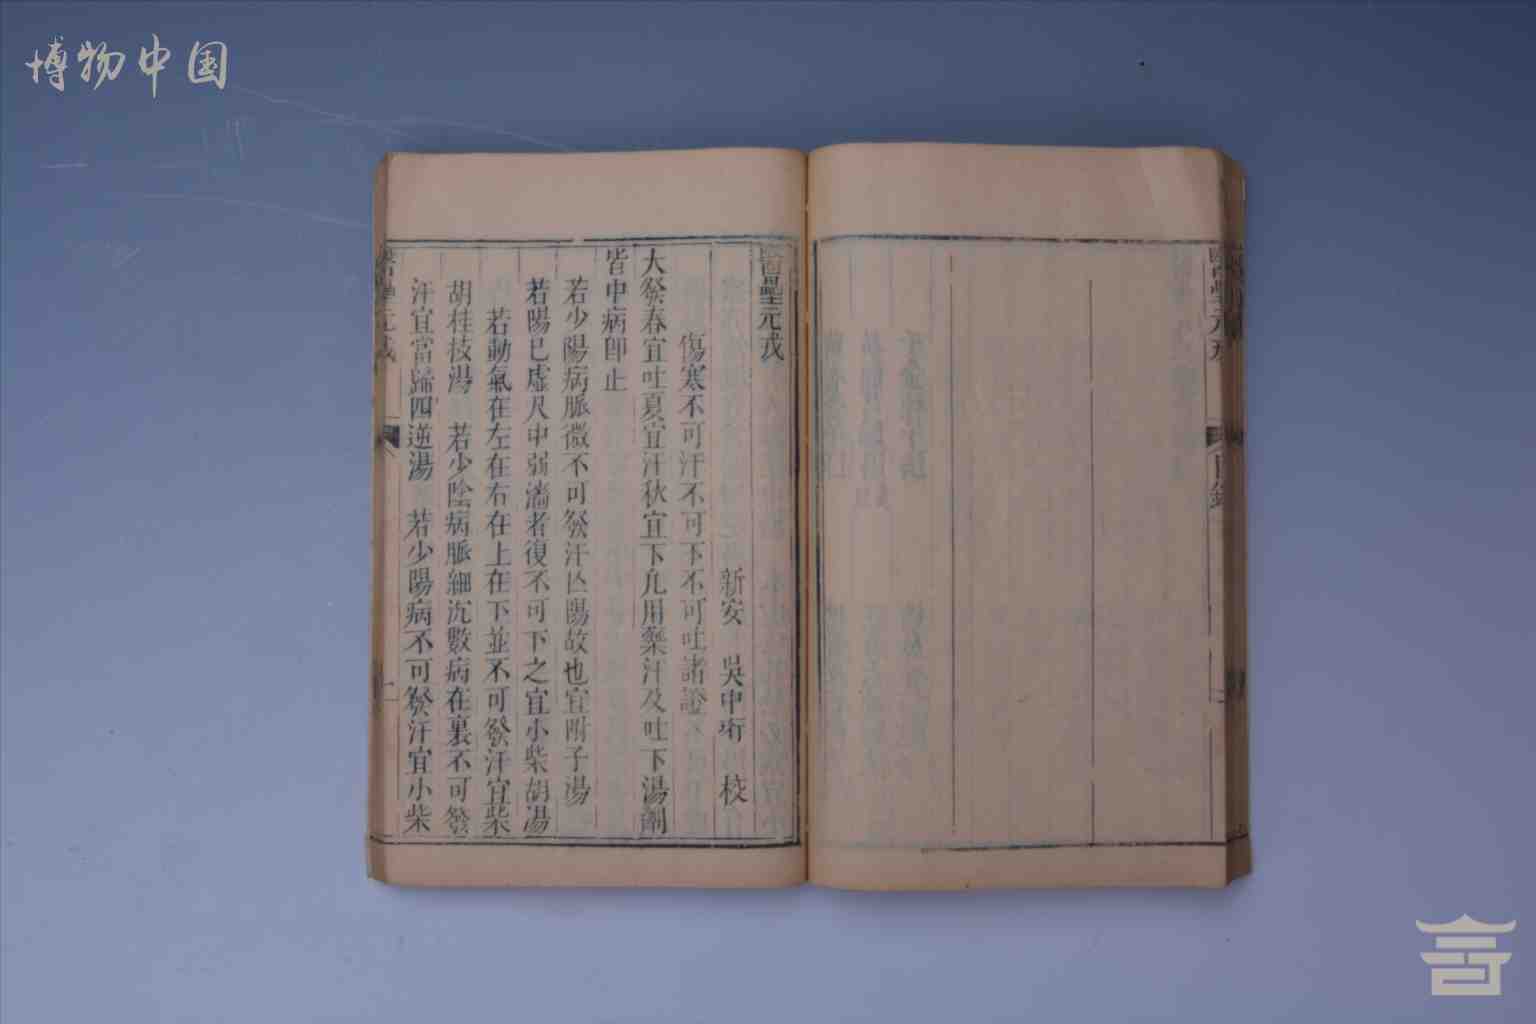 博物中国
醫壘元戎
目錄
醫壘元戎
新安 吳中珩 校
傷寒不可汗不可下不可吐諸證
大發春宜吐夏宜汗秋宜下凢用藥汗及吐下湯劑
皆中病即止
若少陽病脈微不可發汗亾陽故也宜附子湯
若陽已虛尺中弱濇者復不可下之宜小柴胡湯
若動氣在左在右在上在下並不可發汗宜柴
胡桂枝湯 若少陰病脈細沉數病在裏不可發
汗宜當歸四逆湯 若少陽病不可發汗宜小柴
醫壘元戎